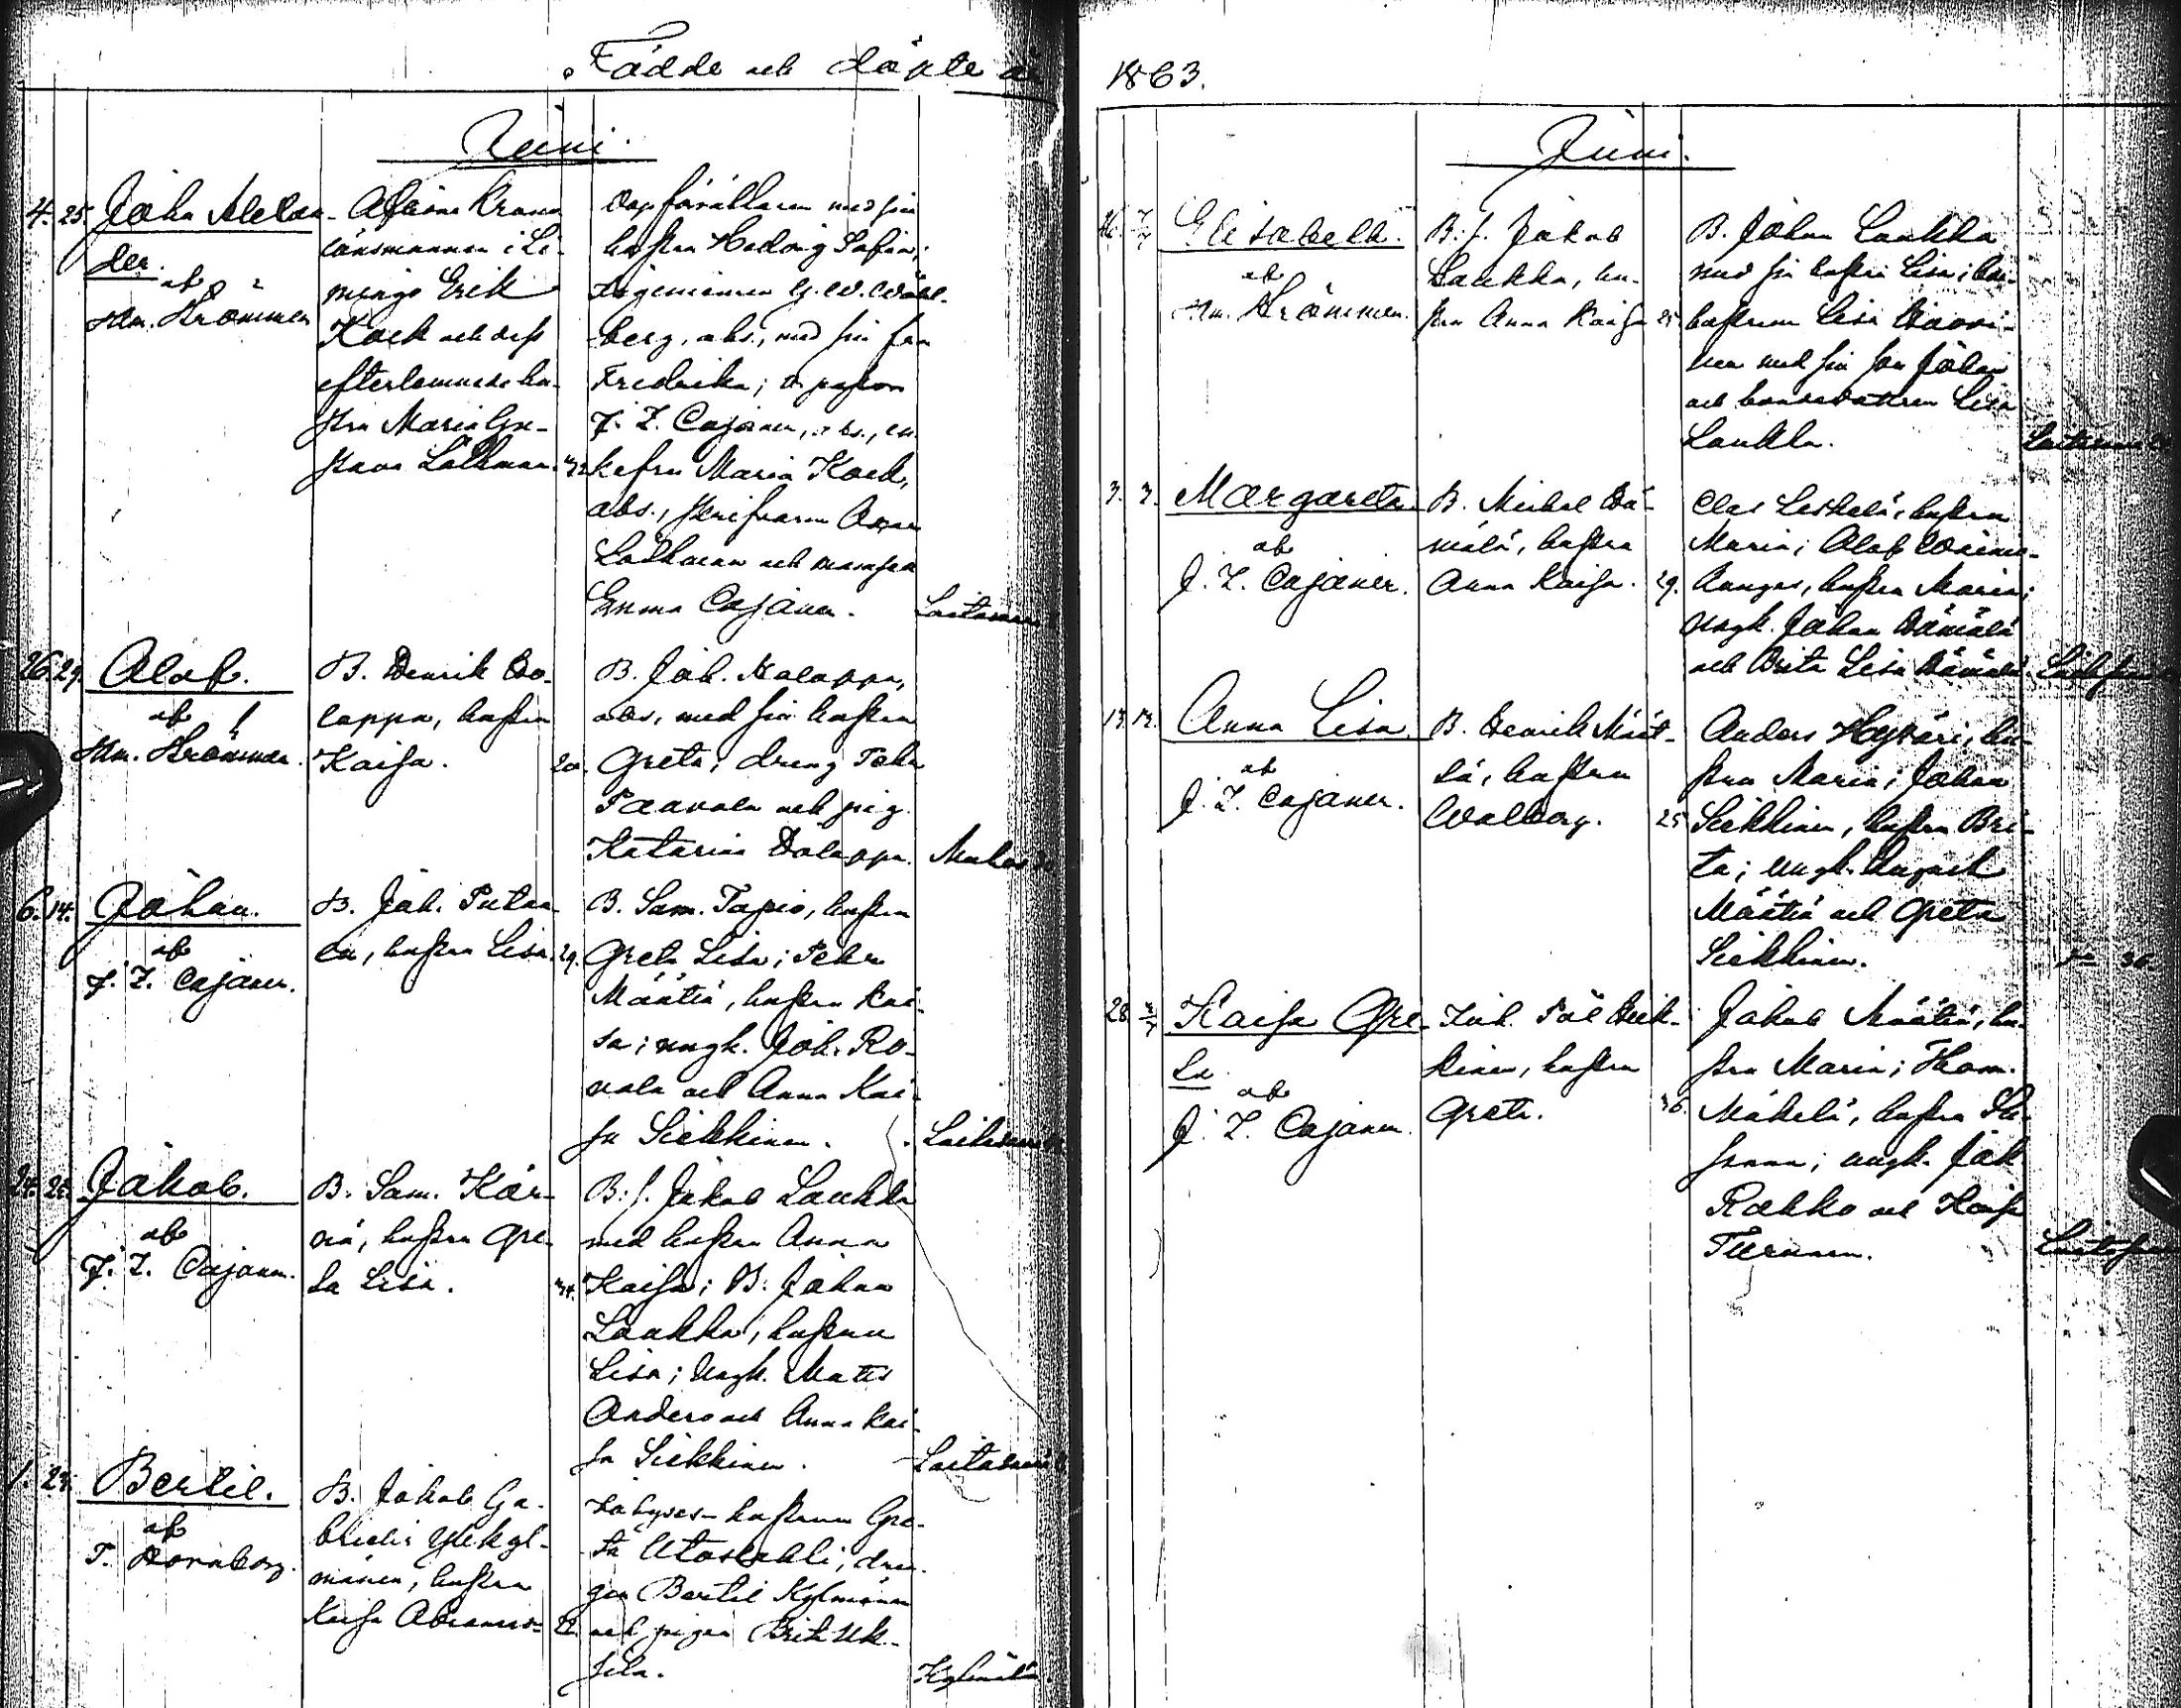 Födde och döpte år
1863.
Juni.
4. 25. Johan Alexan-
der.
af
Hm. Krömmer
Aflidne Krono
länsmannen i Li-
mingo Erik
Kock och dess
efterlemnade hu-
stru Maria Gu-
stava Lathman.
hustru Hedvig Sofia;
Ingenieuren G. W. Wahl-
berg, abs., med sin fru
Fredrika;
J. Z. Cajaner, abs., en-
kefru Maria Kock,
abs.,
Lathman och mamsell
Emma Cajaner.
26. 29. Olof.
af
Hm. Krömmer.
B. Henrik Ho-
lappa, hustru
Kaisa.
20.
B. Joh. Holappa,
abs, med sin hustru
Greta; dreng Pehr
Paavola och pig.
Katarina Holappa.
Muhos
6. 14. Johan.
af
J. Z. Cajaner.
B. Joh. Putaa-
la, hustru Lisa.
29.
B. Sam. Tapio, hustru
Greta Lisa; Pehr
Määttä, hustru Kai-
sa; ungk. Joh. Ro-
vala och Anna Kai-
sa Siekkinen.
Laitasaari
24. Jakob.
af
J. Z. Cajaner.
B. Sam. Kär-
nä, hustru Gre-
ta Lisa.
34.
B:s. Jakob Laukka
med hustru Anna
Kaisa; B. Johan
Laukka, hustru
Lisa; ungk. Mats
Anders och Anna Kai-
sa Siekkinen.
Laitasaari
1. 24. Bertil.
af
T. Hornborg.
B. Jakob Ga-
briels Kylmänen, hustru
Kaisa Abramsd:
22.
Inhyses-hustrun Gre-
ta Utoslahti, dren-
gen Bertil Kylmänen
och pigan Brita
Kylmälä
Juni.
Elisabeth.
af
Hm. Krömmer.
B:s. Jakob
Laukka, hu-
stru Anna Kaisa
25.
B. Johan Laukka
med sin hustru Lisa;
hustrun Lisa
nen med sin son Johan
och bondedottren Lisa
Laukka.
Laitasaari
3. 3. Margareta
af
J. Z. Cajaner.
B. Michel Hä-
mälä, hustru
Anna Kaisa.
29.
Clas Leskelä, hustru
Maria; Olof
kangas, hustru Maria;
ungk. Johan Hämälä
och Brita Lisa Hämälä.
13. 13. Anna Lisa
af
J. Z. Cajaner.
B. Henrik Määt-
tä, hustru
Walborg.
25
Anders Hyväri, hu-
stru Maria; Johan
Siekkinen, hustru Bri-
ta; ungk. August
Määttä och Greta
Siekkinen.
28. Kaisa Gre-
ta
af
J. Z. Cajaner.
Inh. Pål Heik-
kinen, hustru
Greta.
36.
Jakob Määttä, hu-
stru Maria; Thom.
Mäkelä, hustru Su-
sanna; ungk. Joh.
Rokko och Kaisa
Turunen.